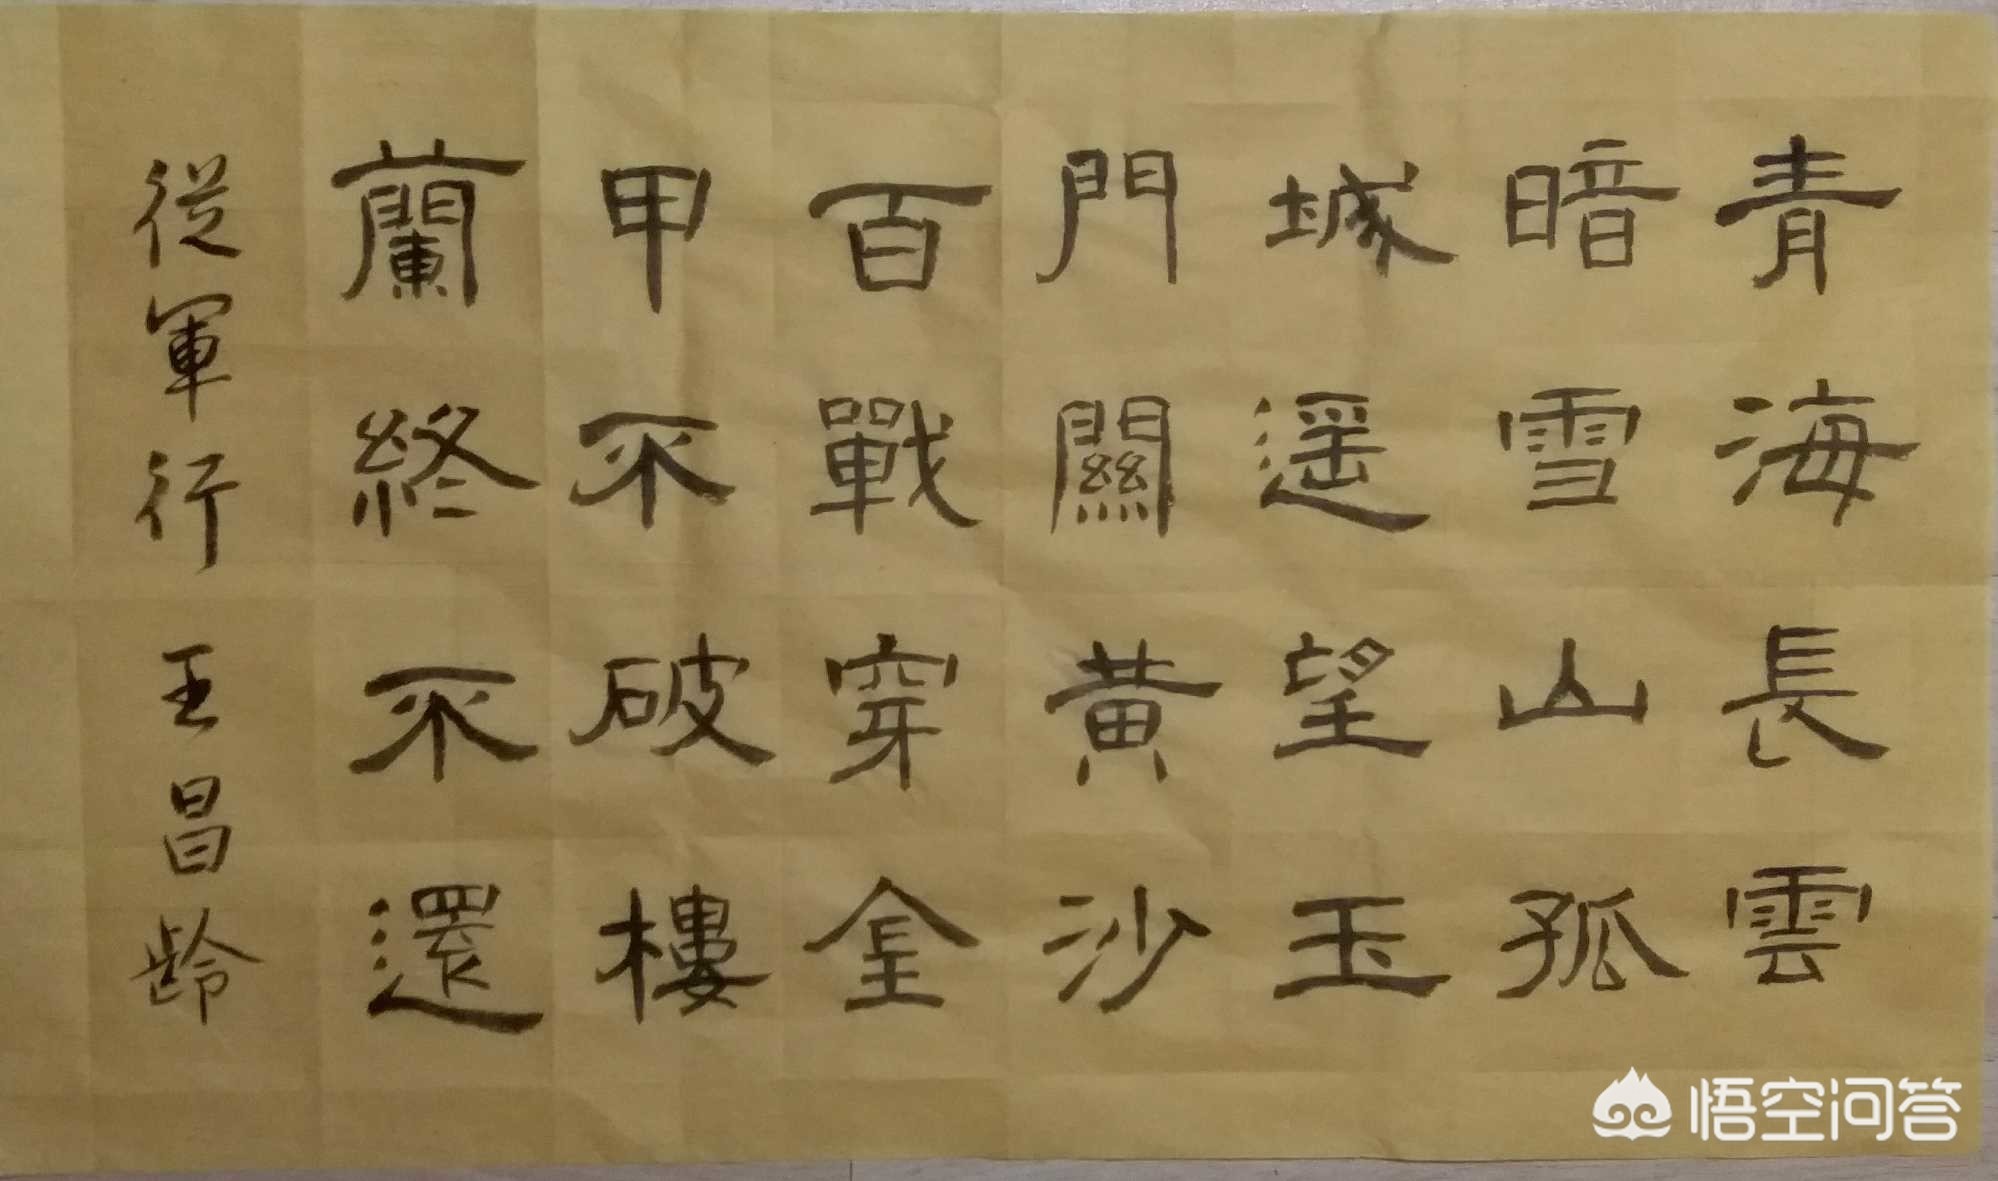 青海長雲
暗雪山孤
城遥望玉
門關黃沙
百戰穿金
甲不破樓
蘭終不還
從軍行 王昌龄
悟空问答